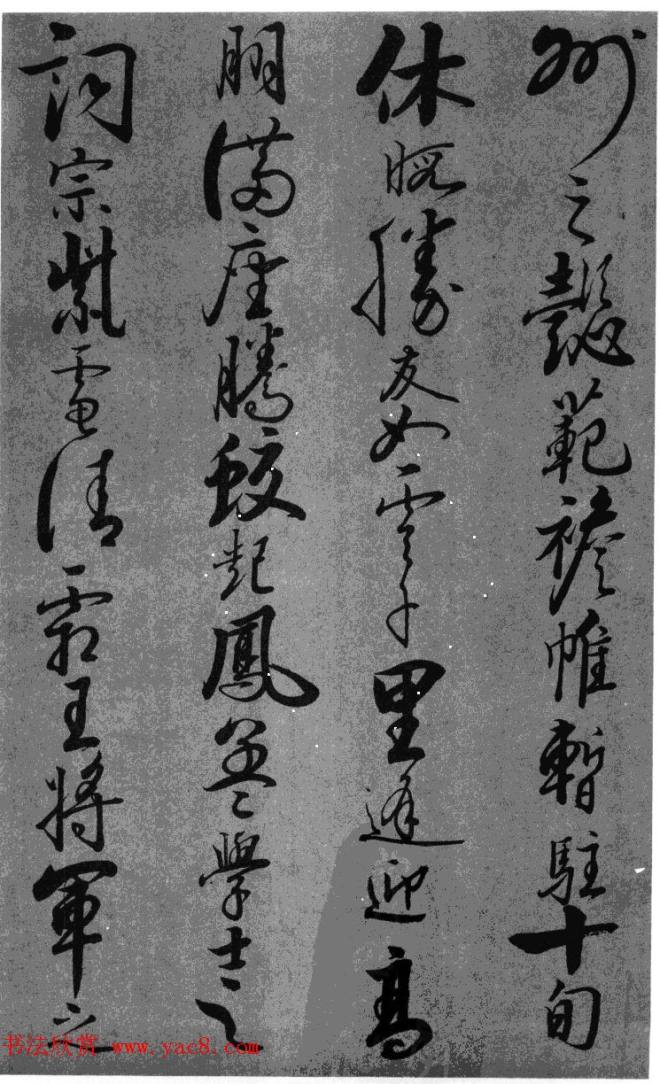 州之懿範襜帷暫駐十旬
休暇勝友如雲千里逢迎高
朋滿座騰蛟起鳳孟學士之
詞宗紫電清霜王將軍之
书法欣赏 www.yac8.com